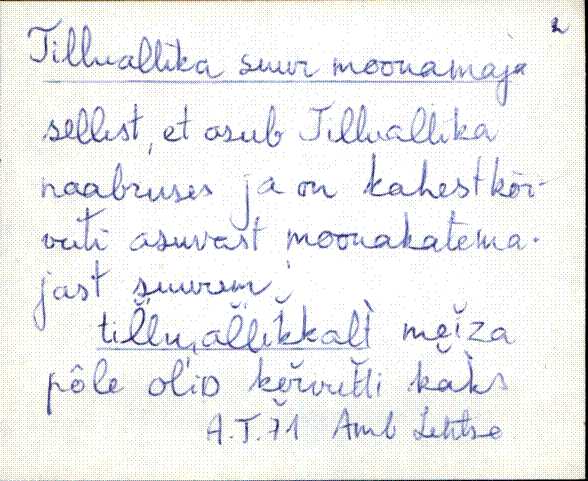 2
Tilluallika suur moonamaja
sellest, et asub Tilluallika
naabruses ja on kahest kõr-
vuti asuvast moonakatema-
jast suurem
tìllu,al̆lik̆kalt̀ mei̯za
pôle olìD kĕrvut̆ti kàks
A.T.71 Amb Lehtse